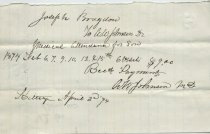 Joseph Bragdon
To A W Johnson Dr
Medical attendance for Son
1874 Feb 6, 7, 9, 10, 12, & 15th 6 visits $9.00
Rec'd Payment
A W Johnson M D
Kittery April 2d 74